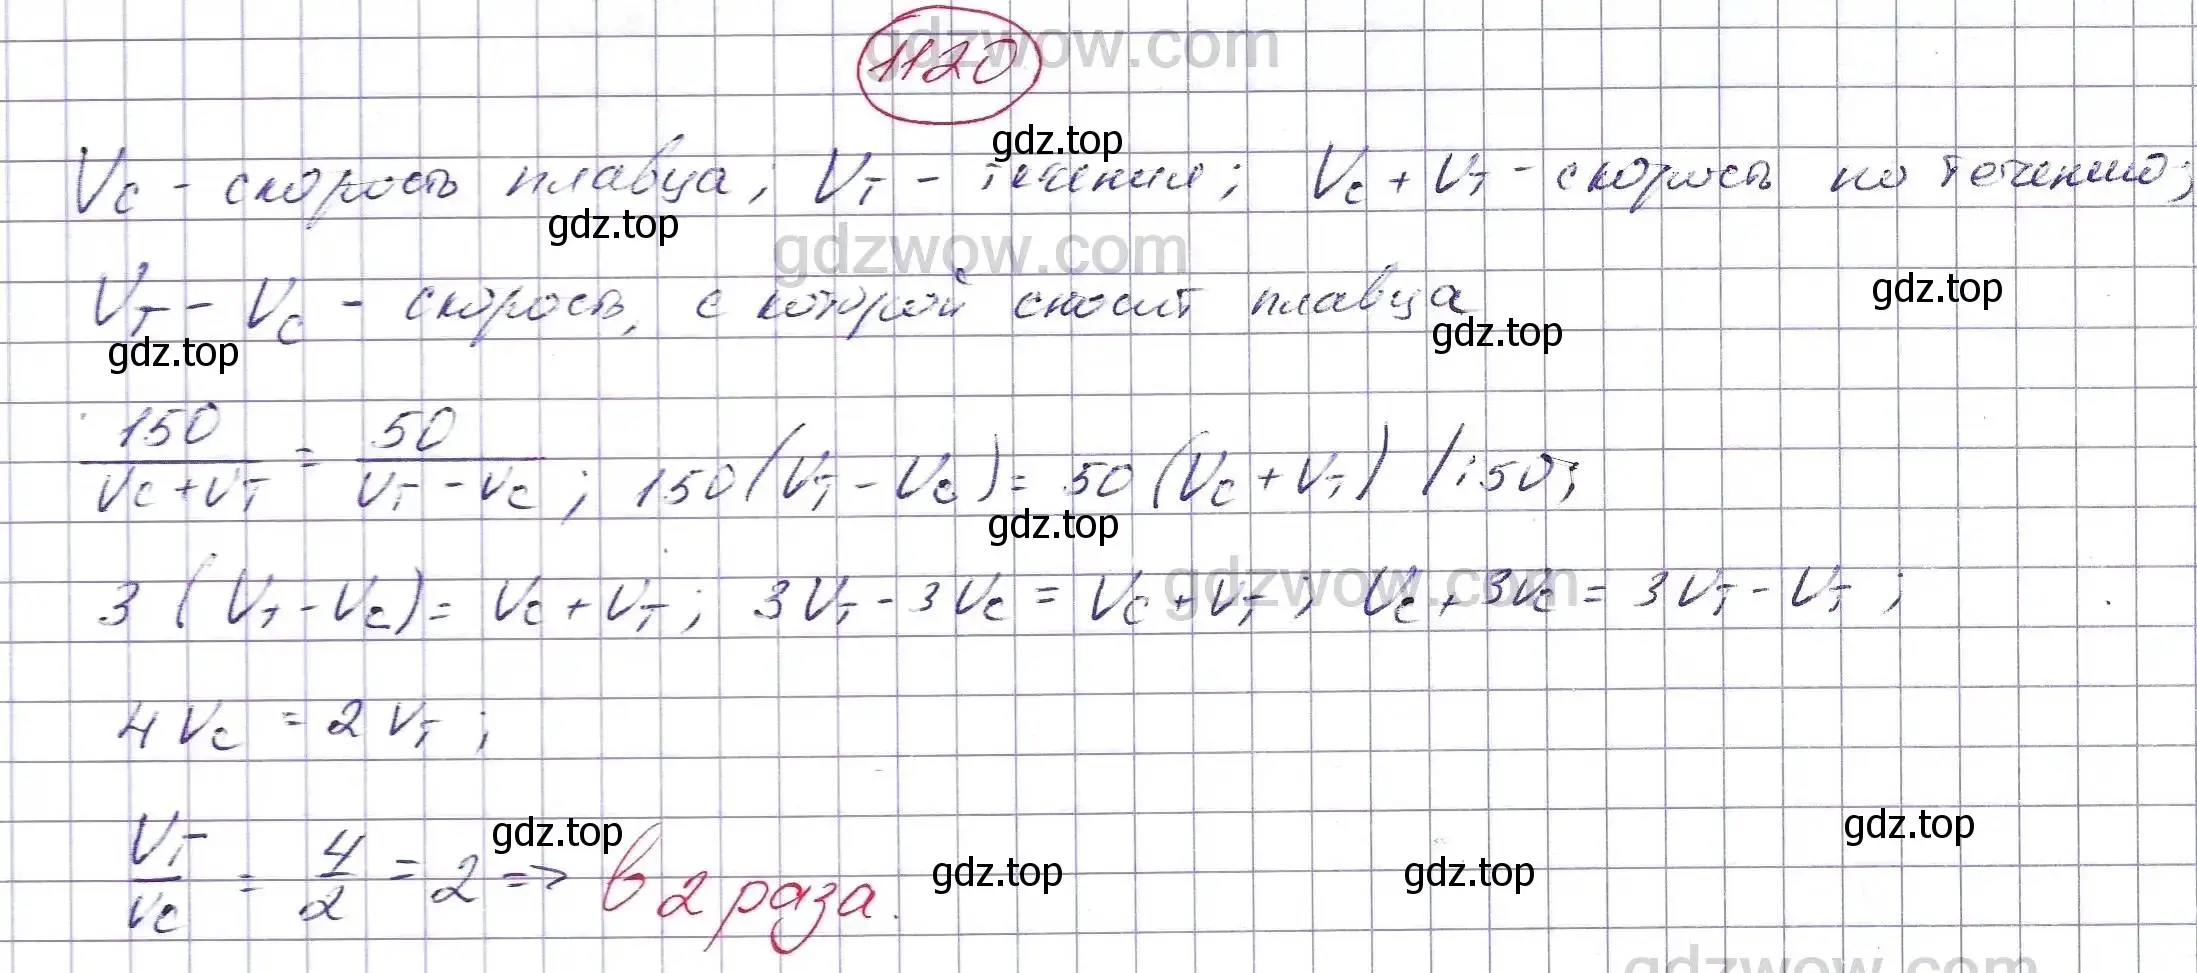 1120
gdzwow.com
gdz.top
Vс - скорость плавца; Vт - течения; Vс + Vт - скорость по течению;
gdz.top
gdzwow.com
gdz.top
Vт - Vс - скорость, с которой сносит плавца
gdz.top
gdz.top
150/(Vс+Vт) = 50/(Vт-Vс); 150(Vт - Vс) = 50(Vс + Vт) /:50;
gdz.top
gdzwow.com
3(Vт - Vс) = Vс + Vт; 3Vт - 3Vс = Vс + Vт; Vс + 3Vс = 3Vт - Vт;
4Vс = 2Vт;
gdz.top
gdz.top
Vт/Vс = 4/2 = 2 => в 2 раза.
gdz.top
gdz.top
gdzwow.com